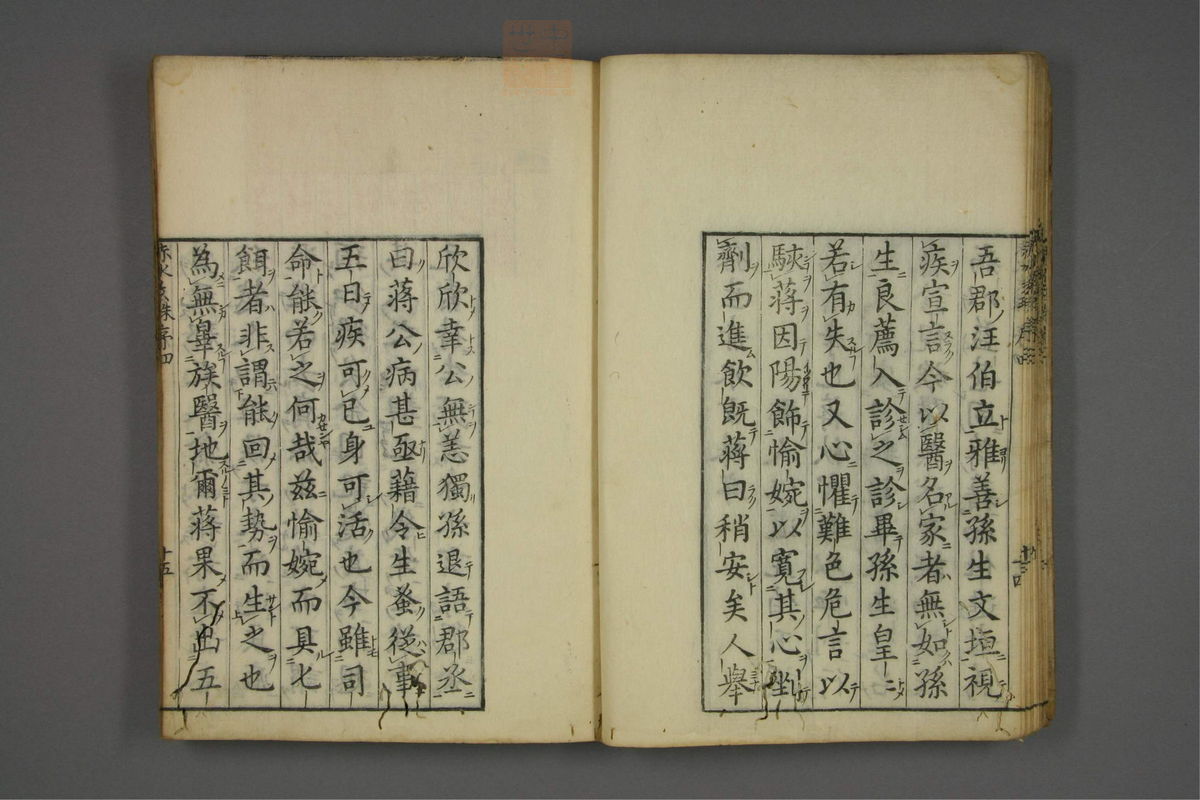 吾郡汪伯立雅善孫生文垣視
疾宣言今以醫名家者無如孫
生良薦入診之診畢孫生皇
若有失也又心懼難色危言以
駴蔣因陽飾愉婉以寬其心坐
劑而進飲既蔣曰稍安矣人舉
欣欣幸公無恙獨孫退語郡丞
曰蔣公病甚亟藉令生蚤從事
五日疾可已身可活也今雖司
命能若之何哉兹愉婉而具七
餌者非謂能回其勢而生之也
為無辜族醫地爾蔣果不出五
序四
十五